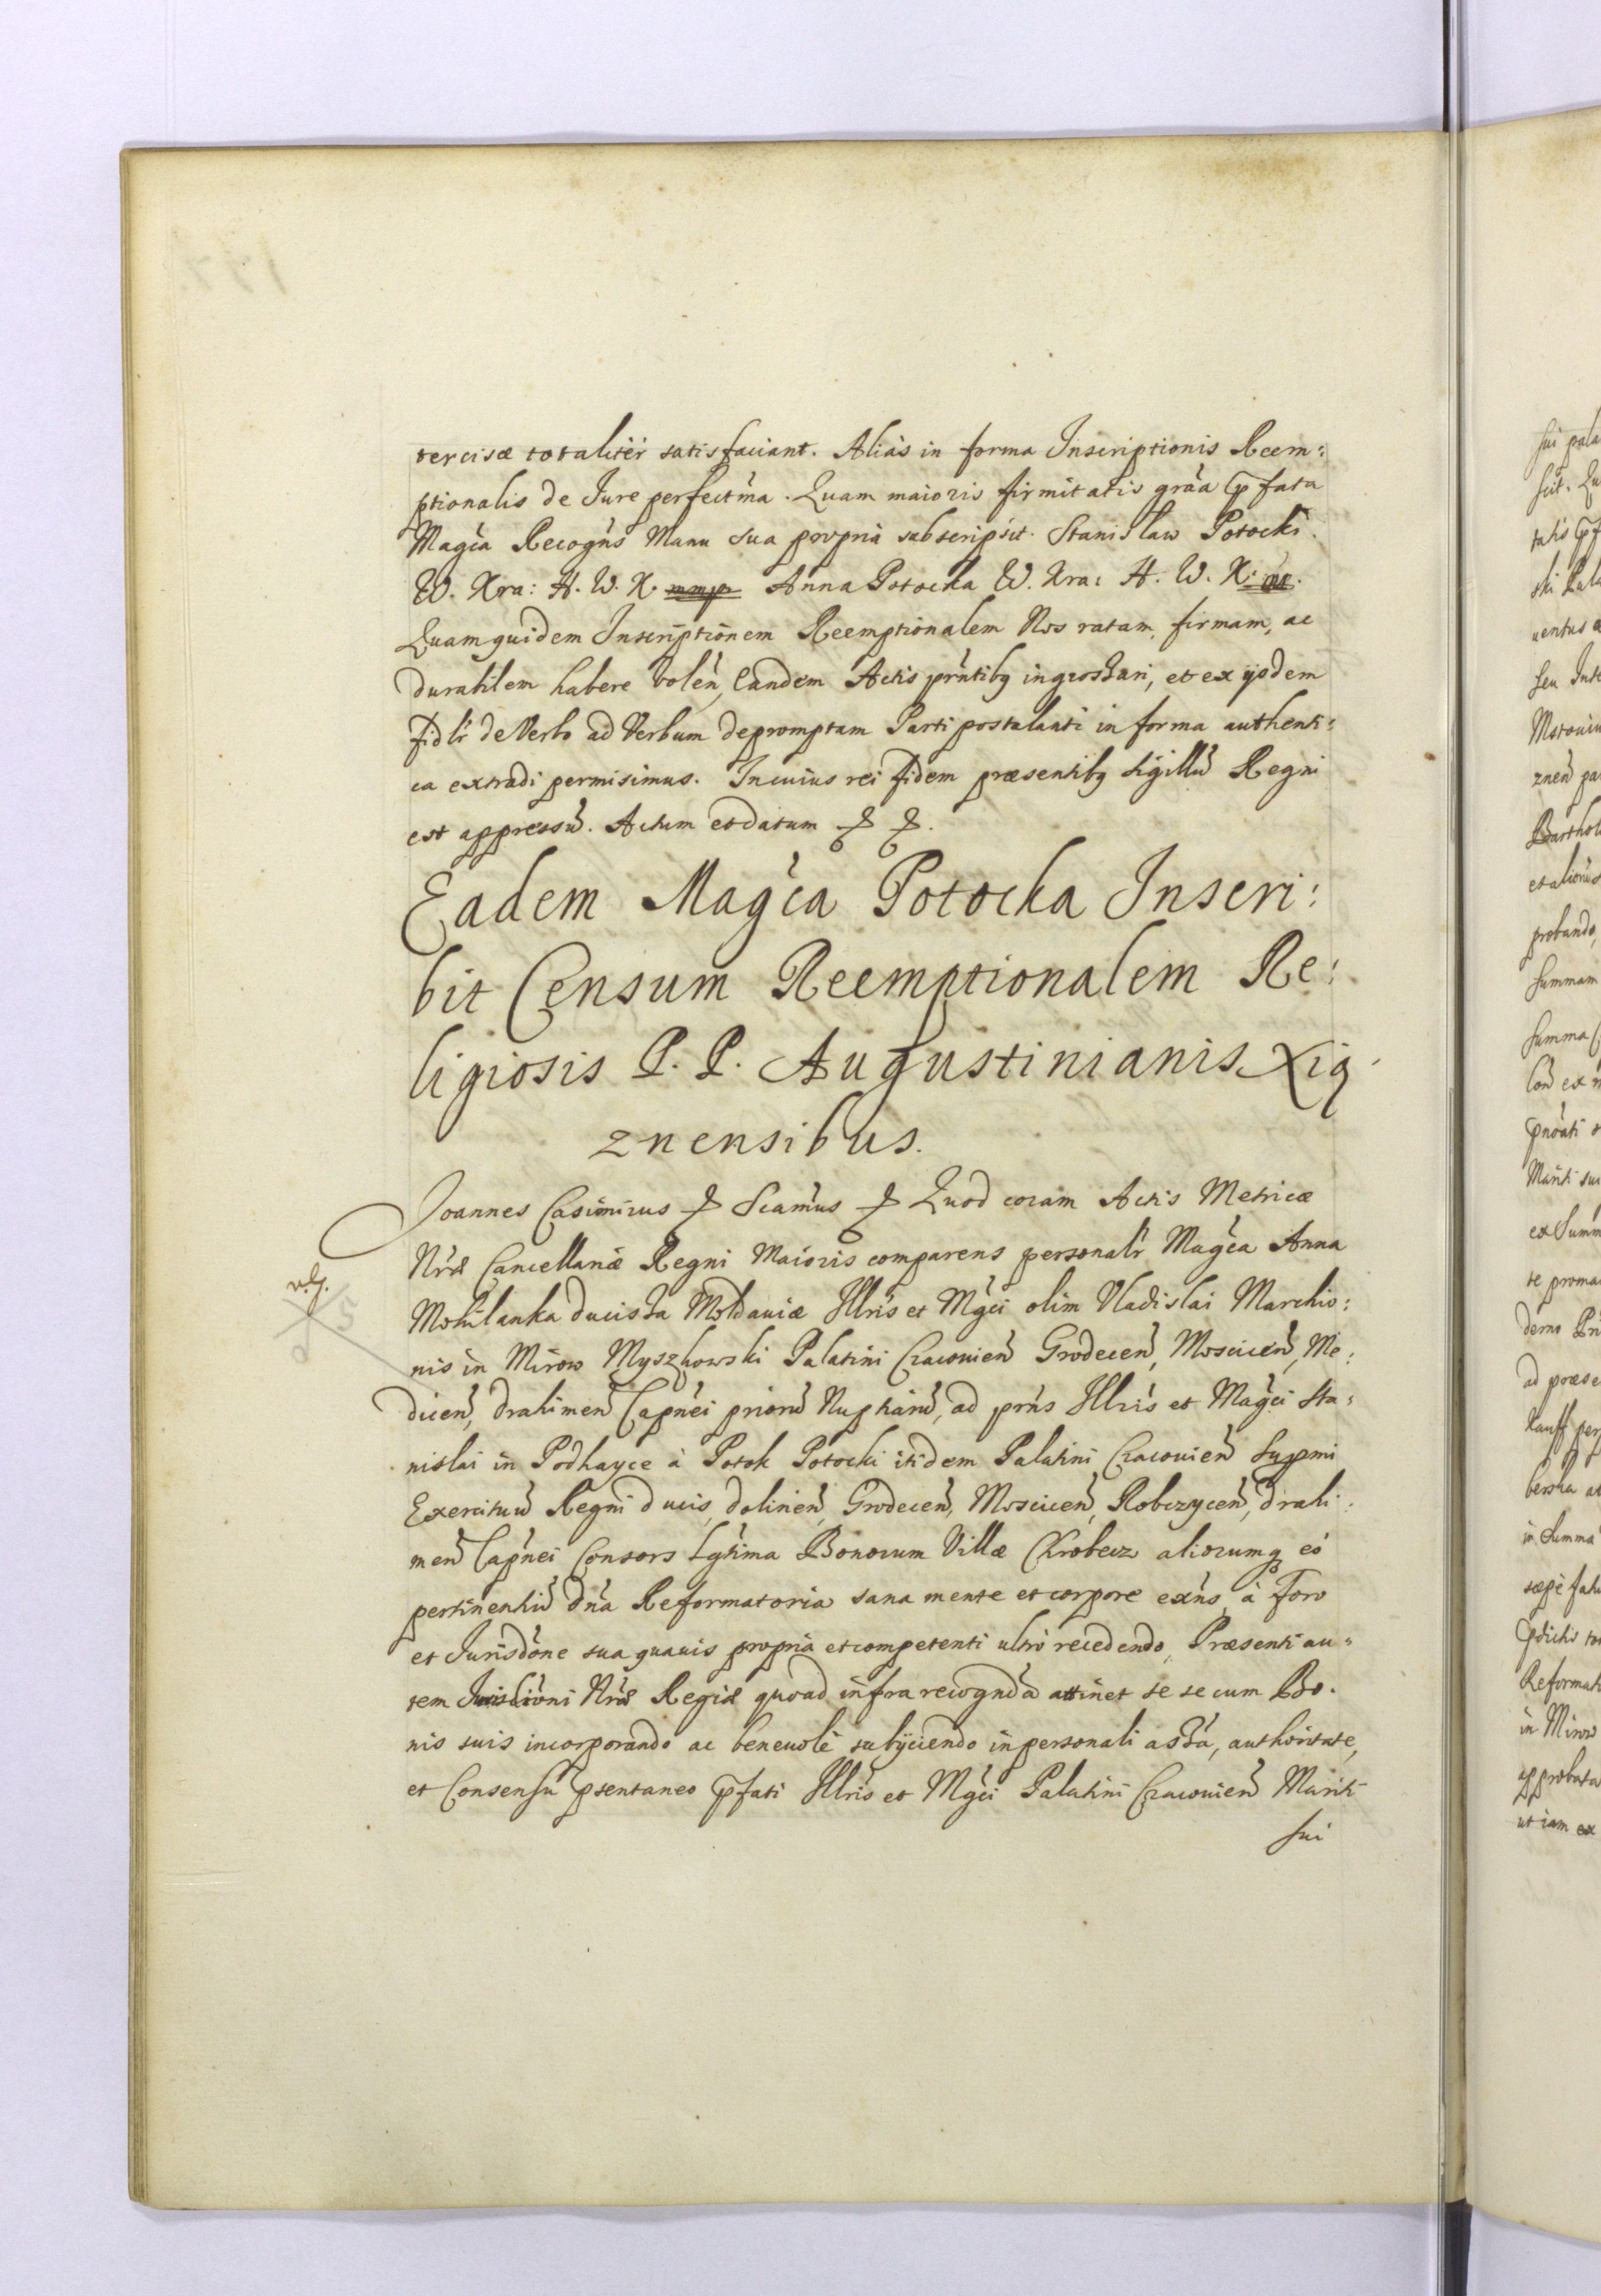 tercisæ totalitèr satisfaciant. Aliàs in forma Inscriptionis Reem:
ptionalis de Jure perfectma. Quam maioris firmitatis grãa pfata
Magca Recogns Manu sua propria subscripsit. Stanisław Potocki
W. Kra: H. W. K. mmp Anna Potocka W. Kra: H. W. K. mp.
Quamquidem Inscriptionem Reemptionalem Nos ratam, firmam, ac
durabilem habere volen, Eandem Actis pntibus ingrossari, et ex ijsdem
fidlr de Verbo ad Verbum depromptam Parti postulanti in forma authenti:
ca extradi permisimus. In cuius rei fidem præsentibus sigillu Regni
est appressu. Actum et datum
Eadem Magca Potocka Inscri:
bit Censum Reemptionalem Re:
ligiosis P. P. Augustinianis Xią
znensibus.
Joannes Casimirus Scamus Quod coram Actis Metricæ
Nræ Cancellariæ Regni Maioris comparens personalr Magca Anna
Mohilanka ducissa Moldauiæ Illris et Mgci olim Vladislai Marchio:
nis in Mirow Myszkowski Palatini Cracouien Grodecen, Moscicen, Me:
dicen, drahimen Capnei prioru Nuptiaru, ad prns Illris et Magci Sta:
nislai in Podhayce à Potok Potocki itidem Palatini Cracouien Supmi
Exercituu Regni ducis, dolinen, Grodecen, Moscicen, Robczycen, drahi:
men Capnei Consors Lgtima Bonorum Villæ Chrobecz aliorumq eò
pertinentiu dna Reformatoria sana mente et corpore exns, à Foro
et Jurisdone sua quauis propria et competenti ultrò recedendo, Præsenti au:
tem Nræ Regiæ quoad infra recognda attinet se se cum Bo:
nis suis incorporando ac beneuolè subijciendo in personali assa, authoritate,
et Consensu psentaneo pfati Illris et Mgci Palatini Cracouien Mariti
sui